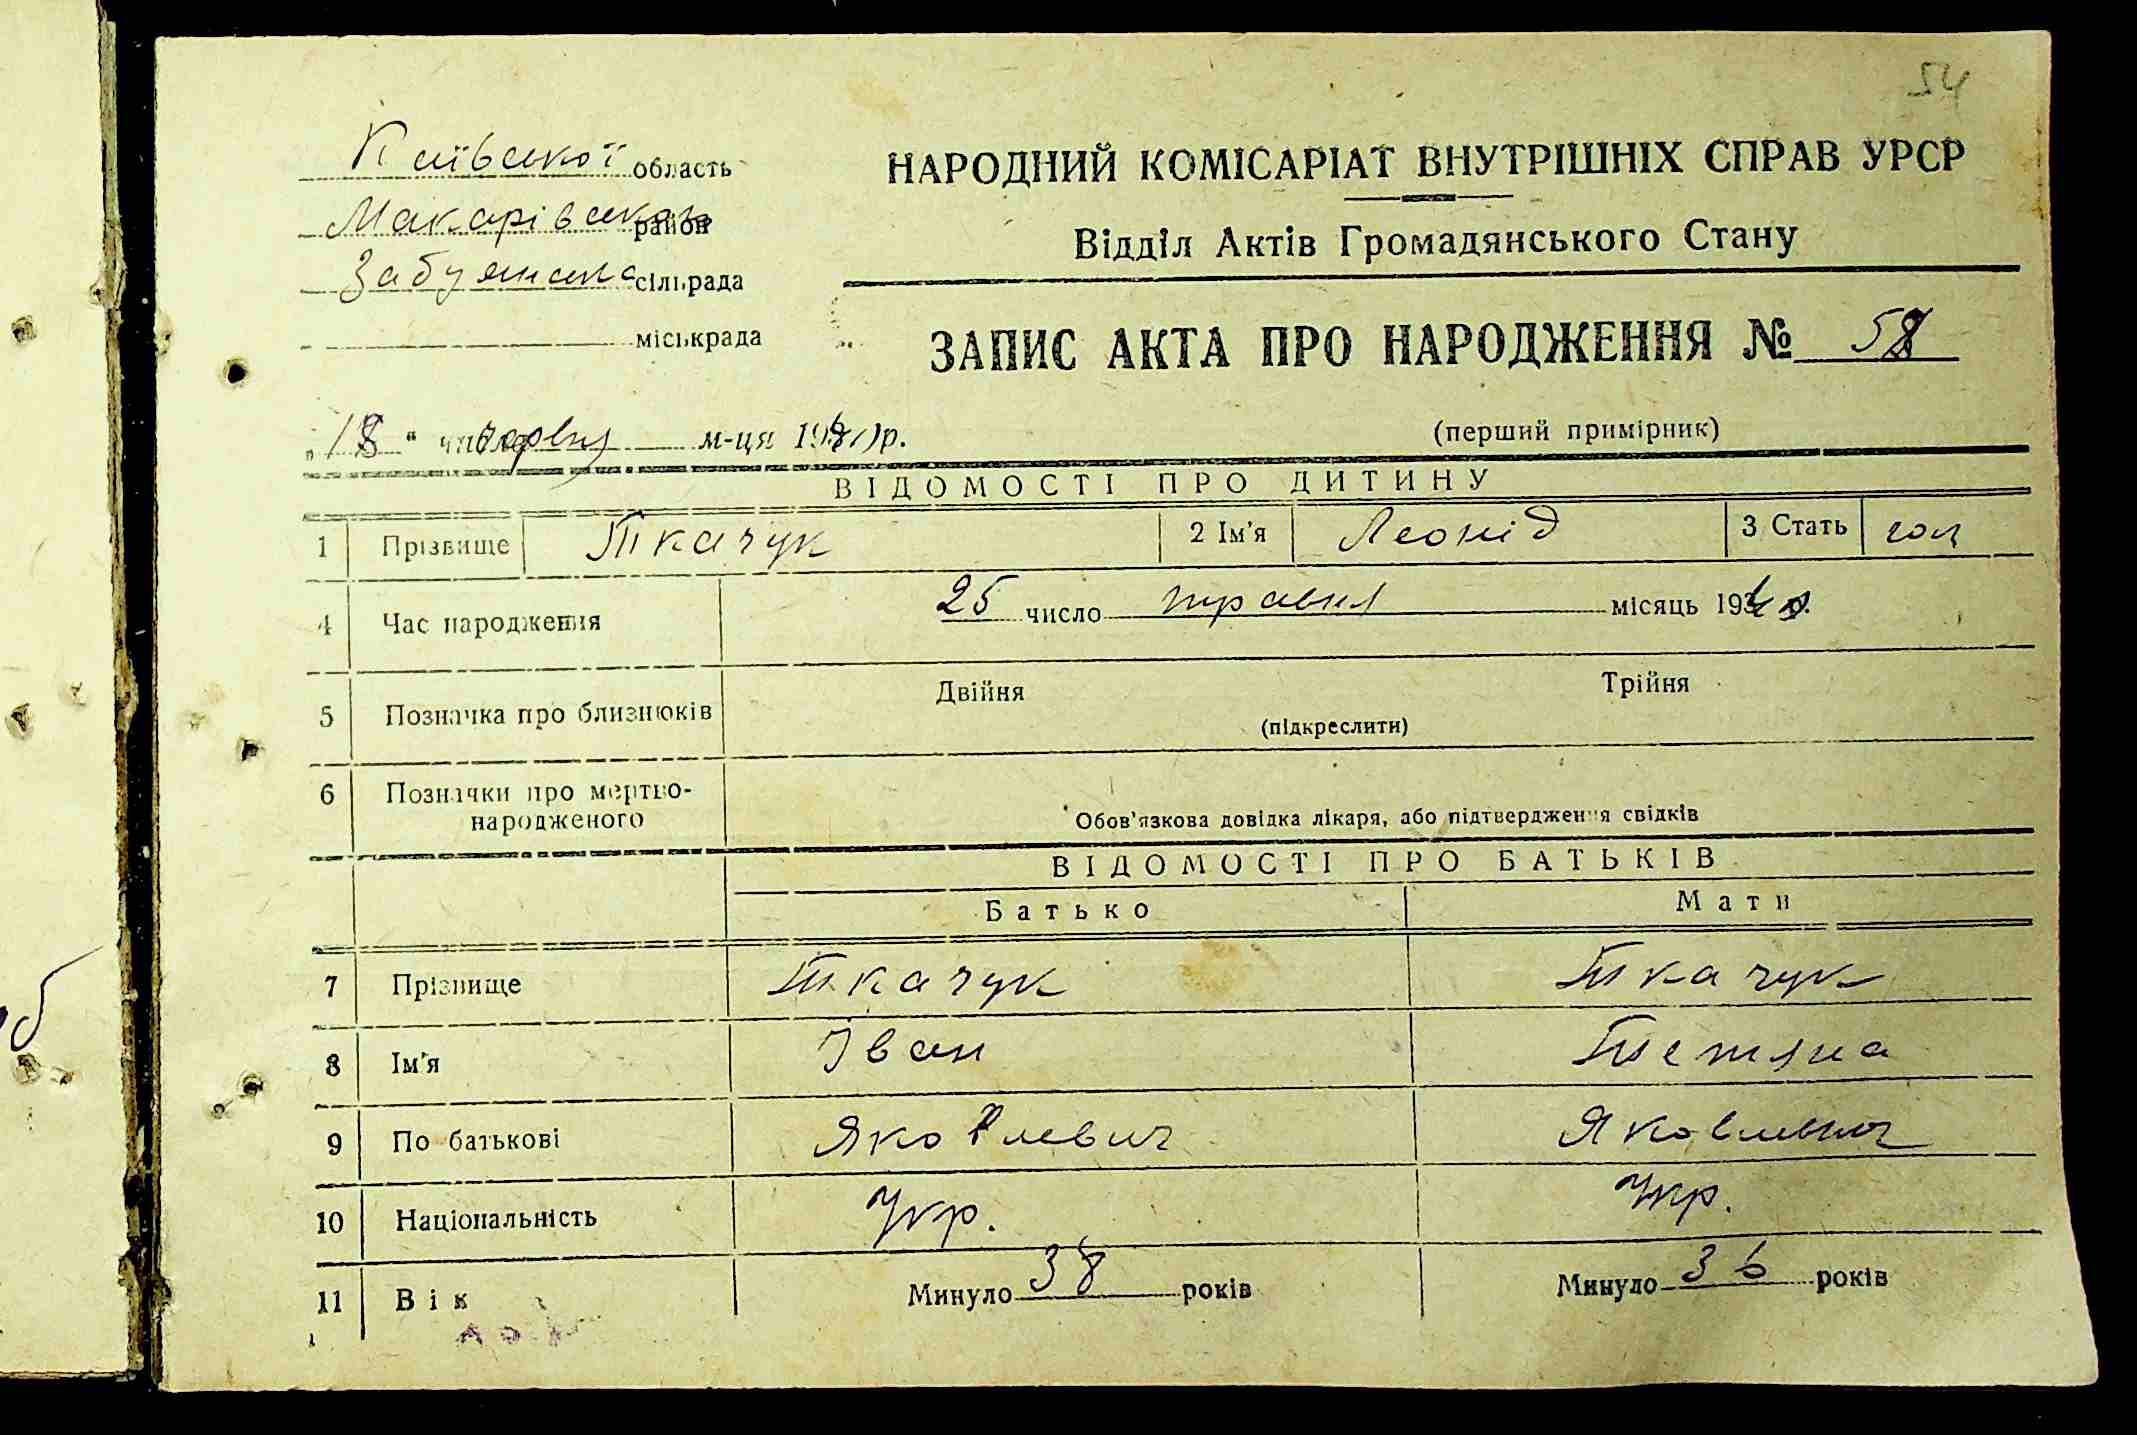 54
Київської область
Макарівський район
Забуянська сільрада
міськрада
НАРОДНИЙ КОМІСАРІАТ ВНУТРІШНІХ СПРАВ УРСР
Відділ Актів Громадянського Стану
ЗАПИС АКТА ПРО НАРОДЖЕННЯ № 58
(перший примірник)
„18" числа червня м-ця 1940 р.
ВІДОМОСТІ ПРО ДИТИНУ
1 Прізвище Ткачук 2 Ім'я Леонід 3 Стать чол
4 Час народження 25 число травня місяць 1940 р.
5 Позначка про близнюків Двійня Трійня
(підкреслити)
6 Позначки про мертво-
народженого Обов'язкова довідка лікаря, або підтвердження свідків
ВІДОМОСТІ ПРО БАТЬКІВ
Батько Мати
7 Прізвище Ткачук Ткачук
8 Ім'я Іван Тетяна
9 По батькові Яковлевич Яковлевна
10 Національність Укр. Укр.
11 Вік Минуло 38 років Минуло 36 років